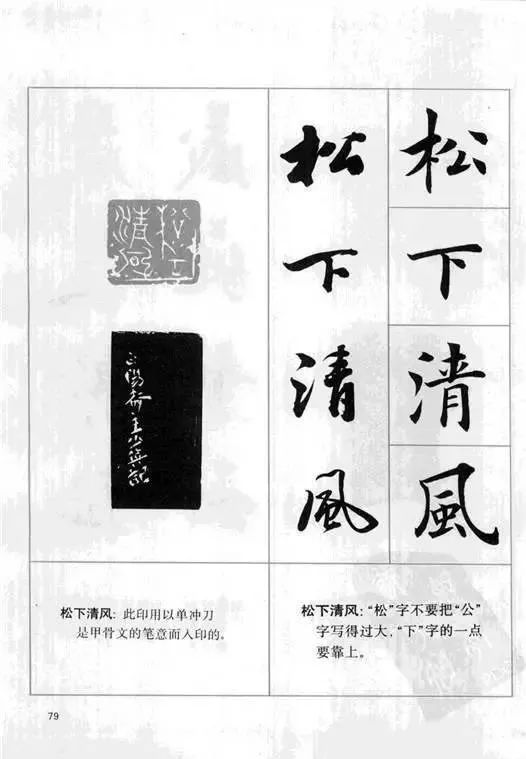 松下清風
松下清風
松下清风：“松”字不要把“公”
字写得过大，“下”字的一点
要靠上。
松下清风：此印用以单冲刀
是甲骨文的笔意而入印的。
79